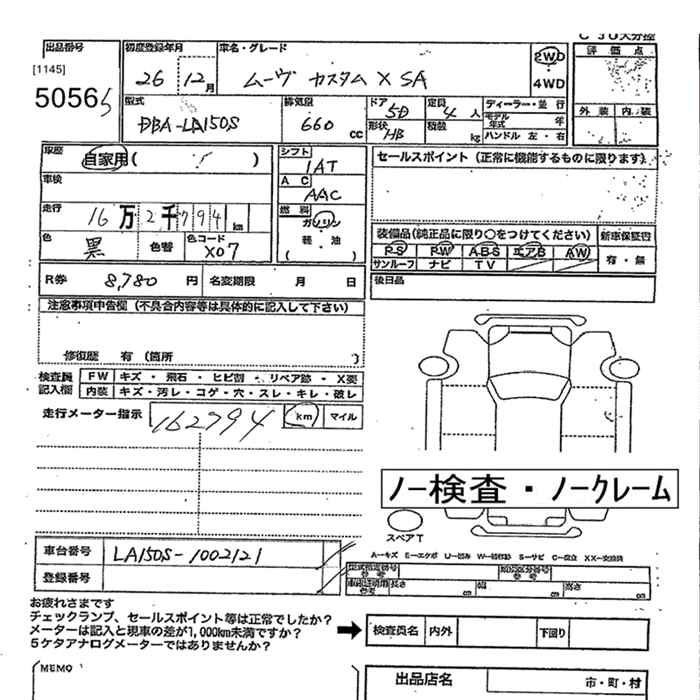 C JU大分控
出品番号 初度登録年月 車名・グレード 評価点
[1145]
5056 26 12月 ムーヴ カスタム X SA 2WD 4WD
型式 排気量 ドア 定員 ディーラー・並行
DBA-LA150S 660 cc 5D 4人 モデル年式 年
形状 HB 積載 kg ハンドル 左・右
外装 内装
車歴 自家用( ) シフト セールスポイント(正常に機能するものに限ります)
IAT
車検 AC
AAC
走行 16万2千794km 燃料
ガソリン
軽・油
色 黒 色替 色コード X07
装備品(純正品に限り○をつけてください) 新車保証書
P-S PW ABS エアB AW 有・無
サンルーフ ナビ TV
R券 8,780円 名変期限 月 日 後日品
注意事項申告欄(不具合内容等は具体的に記入して下さい)
修復歴 有(箇所 )
検査員記入欄 FW キズ・飛石・ヒビ割・リペア跡・X要
内装 キズ・汚レ・コゲ・穴・スレ・キレ・破レ
走行メーター指示 162794 km マイル
ノー検査・ノークレーム
スペアT
車台番号 LA150S-1002121
登録番号
A-キズ E-エクボ U-凹み W-補修跡 S-サビ C-腐食 XX-交換済
型式指定番号 類別区分番号
長さ cm 幅 cm 高さ cm
お疲れさまです
チェックランプ、セールスポイント等は正常でしたか?
メーターは記入と現車の差が1,000km未満ですか?
5ケタアナログメーターではありませんか?
検査員名 内外 下回り
MEMO 出品店名 市・町・村